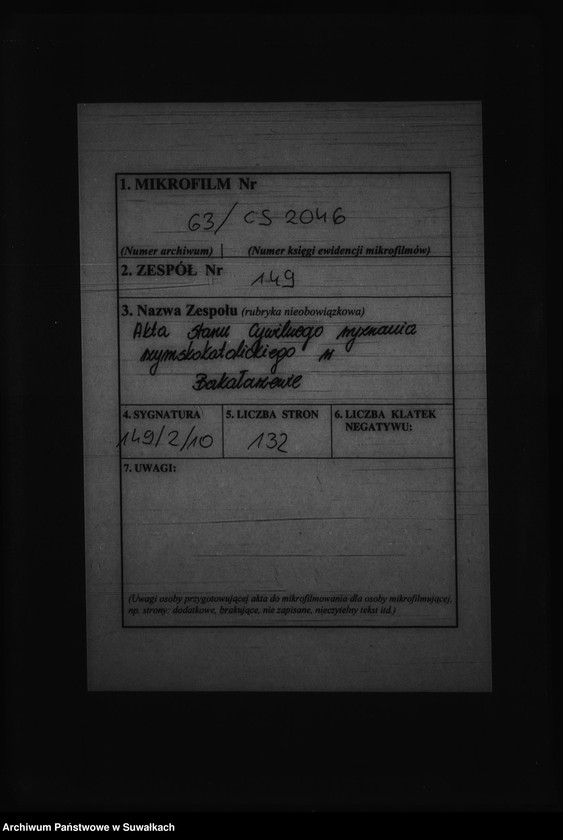 1. MIKROFILM Nr
63/ CS 2046
(Numer archiwum) (Numer księgi ewidencji mikrofilmów)
2. ZESPÓŁ Nr
149
3. Nazwa Zespołu (rubryka nieobowiązkowa)
Akta Stanu Cywilnego wyznania
rzymskokatolickiego w
Bakałarzewie
4. SYGNATURA 5. LICZBA STRON 6. LICZBA KLATEK
NEGATYWU:
149/2/10 132
7. UWAGI:
(Uwagi osoby przygotowującej akta do mikrofilmowania dla osoby mikrofilmującej,
np. strony: dodatkowe, brakujące, nie zapisane, nieczytelny tekst itd.)
Archiwum Państwowe w Suwałkach